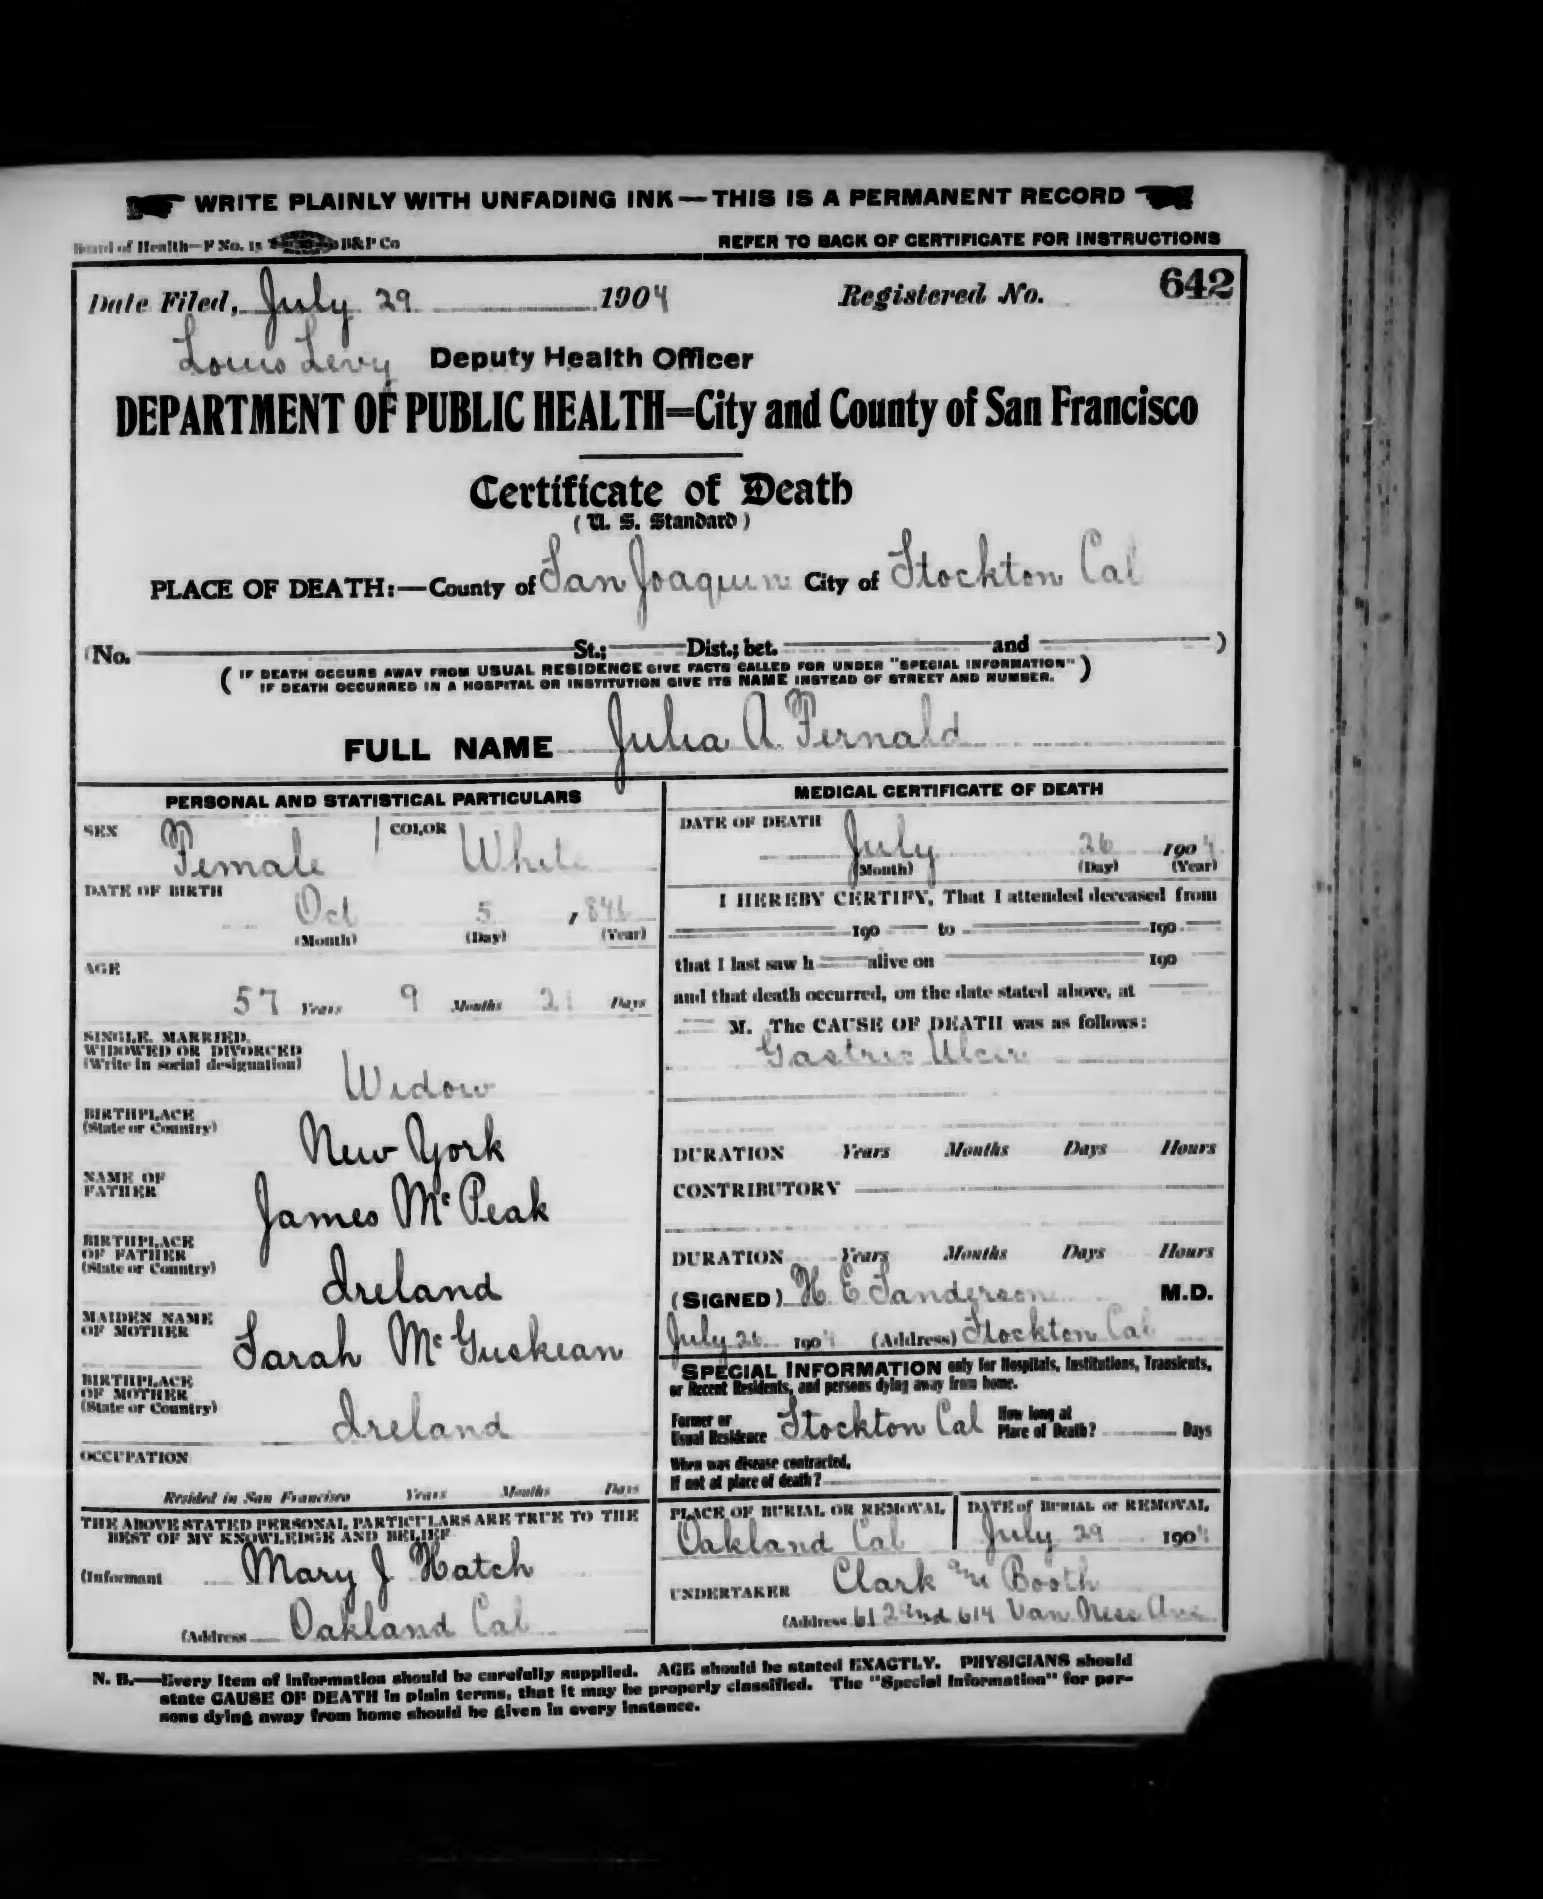 WRITE PLAINLY WITH UNFADING INK—THIS IS A PERMANENT RECORD
Board of Health—F No. 15 B&P Co
REFER TO BACK OF CERTIFICATE FOR INSTRUCTIONS
Date Filed, July 29 1904 Registered No. 642
Louis Levy Deputy Health Officer
DEPARTMENT OF PUBLIC HEALTH—City and County of San Francisco
Certificate of Death
(U. S. Standard)
PLACE OF DEATH:—County of San Joaquin City of Stockton Cal
(No. St.; Dist.; bet. and )
( IF DEATH OCCURS AWAY FROM USUAL RESIDENCE GIVE FACTS CALLED FOR UNDER "SPECIAL INFORMATION"
IF DEATH OCCURRED IN A HOSPITAL OR INSTITUTION GIVE ITS NAME INSTEAD OF STREET AND NUMBER. )
FULL NAME Julia A. Fernald
PERSONAL AND STATISTICAL PARTICULARS
SEX Female COLOR White
DATE OF BIRTH
Oct 5, 1846
(Month) (Day) (Year)
AGE
57 Years 9 Months 21 Days
SINGLE, MARRIED,
WIDOWED OR DIVORCED
(Write in social designation)
Widow
BIRTHPLACE
(State or Country)
New York
NAME OF
FATHER
James McPeak
BIRTHPLACE
OF FATHER
(State or Country)
Ireland
MAIDEN NAME
OF MOTHER
Sarah McGuskean
BIRTHPLACE
OF MOTHER
(State or Country)
Ireland
OCCUPATION
Resided in San Francisco Years Months Days
THE ABOVE STATED PERSONAL PARTICULARS ARE TRUE TO THE
BEST OF MY KNOWLEDGE AND BELIEF
(Informant Mary J Hatch
(Address Oakland Cal
MEDICAL CERTIFICATE OF DEATH
DATE OF DEATH
July 26 1904
(Month) (Day) (Year)
I HEREBY CERTIFY, That I attended deceased from
190 to 190
that I last saw h alive on 190
and that death occurred, on the date stated above, at
M. The CAUSE OF DEATH was as follows:
Gastric Ulcer
DURATION Years Months Days Hours
CONTRIBUTORY
DURATION Years Months Days Hours
(SIGNED) H. E. Sanderson M.D.
July 26 1904 (Address) Stockton Cal
SPECIAL INFORMATION only for Hospitals, Institutions, Transients,
or Recent Residents, and persons dying away from home.
Former or
Usual Residence Stockton Cal How long at
Place of Death? Days
When was disease contracted,
If not at place of death?
PLACE OF BURIAL OR REMOVAL
Oakland Cal
DATE of BURIAL or REMOVAL
July 29 1904
UNDERTAKER Clark and Booth
(Address 612 and 614 Van Ness Ave
N. B.—Every item of information should be carefully supplied. AGE should be stated EXACTLY. PHYSICIANS should
state CAUSE OF DEATH in plain terms, that it may be properly classified. The "Special Information" for per-
sons dying away from home should be given in every instance.